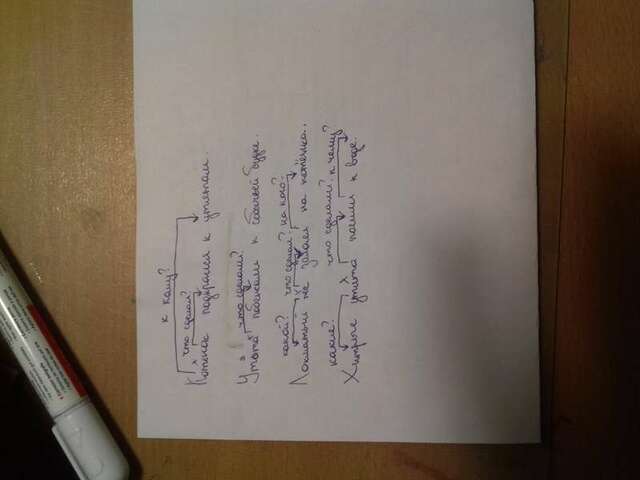 к кому?
что сделал?
Котёнок подкрался к утятам.
что сделали?
Утята побежали к собачьей будке.
какой? что сделал? на кого?
Лохматый пёс залаял на котёнка.
какие? что сделали? к чему?
Хитрые утята пошли к воде.